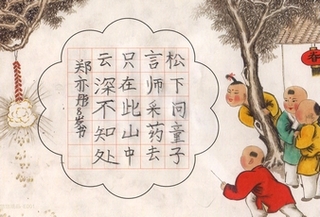 松下问童子
言师采药去
只在此山中
云深不知处
郑亦彤8岁书
春